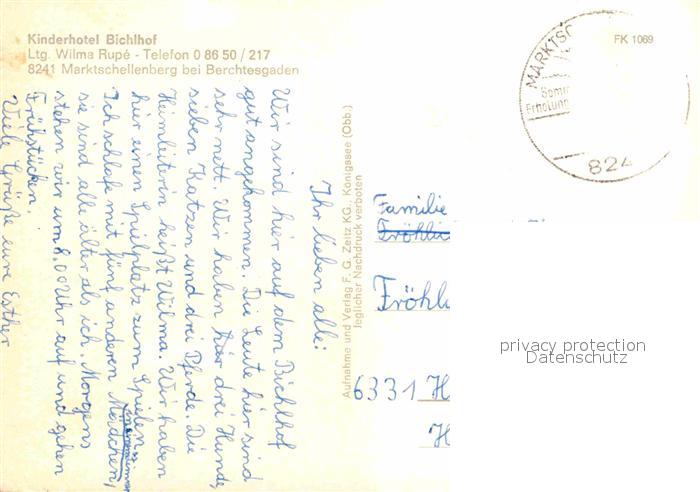 Kinderhotel Bichlhof
Ltg. Wilma Rupé - Telefon 0 86 50 / 217
8241 Marktschellenberg bei Berchtesgaden
FK 1069
MARKTSC
Somm
Erholung
824
Ihr lieben alle!
Wir sind hier auf dem Bichlhof
gut angekommen. Die Leute hier sind
sehr nett. Wir haben hier drei Hunde,
sieben Katzen und drei Pferde. Die
Heimleiterin heißt Wilma. Wir haben
hier einen Spielplatz zum Spielen.
Ich schlafe mit fünf anderen Mädchen,
sie sind alle älter als ich. Morgens
stehen wir um 8.00 Uhr auf und gehen
Frühstücken.
Viele Grüße eure Esther
Aufnahme und Verlag F. G. Zeitz KG., Königssee (Obb.)
Jeglicher Nachdruck verboten
Familie
Fröhli
Fröhl
6331 H
H
privacy protection
Datenschutz